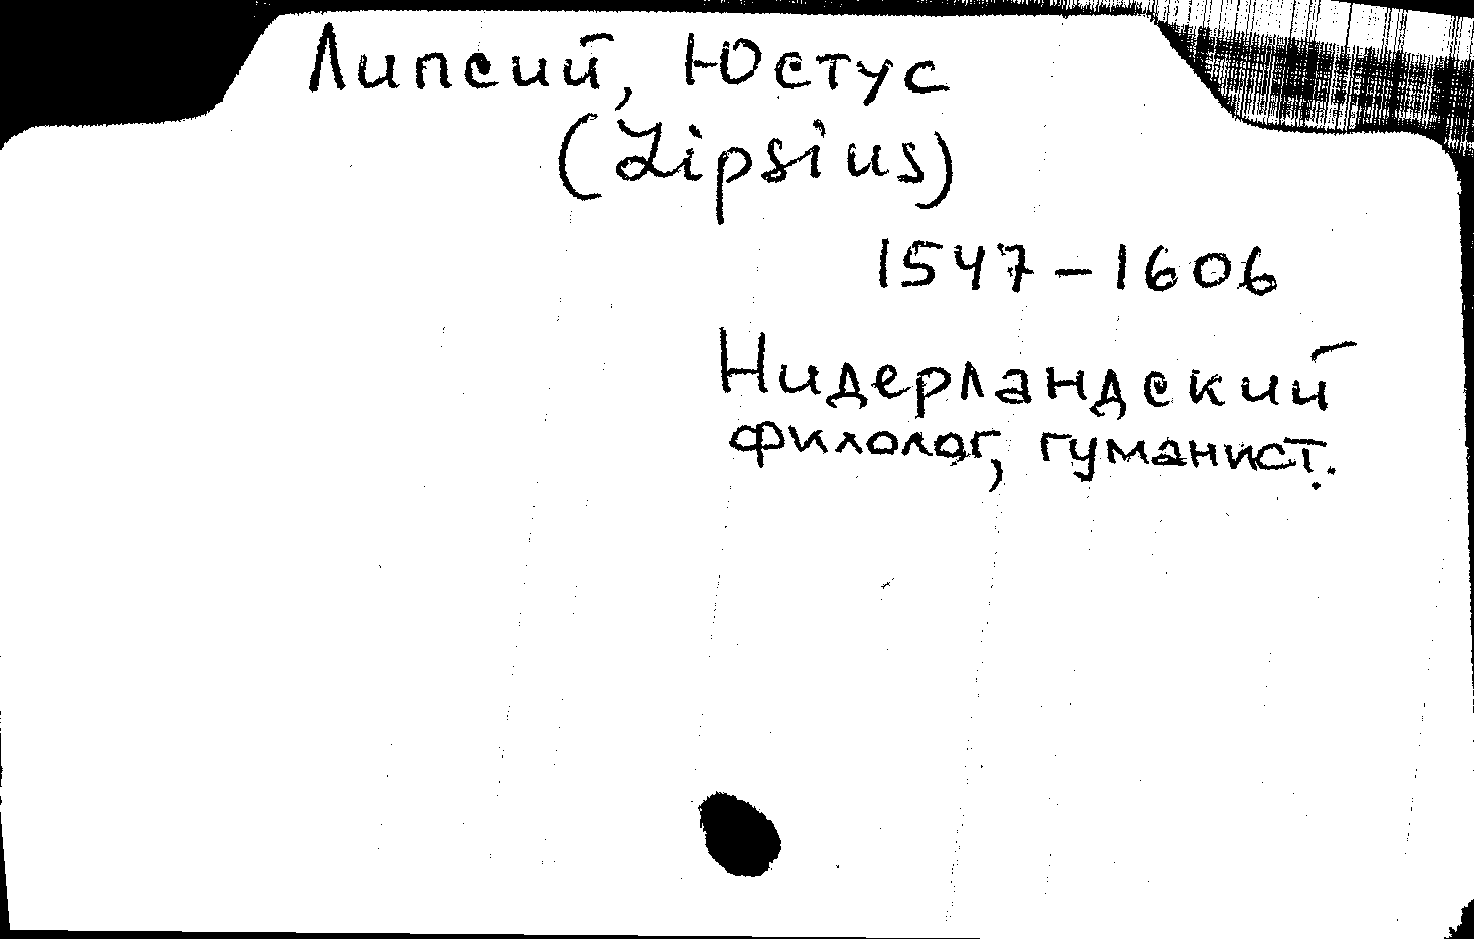 Липсий, Юстус
(Lipsius)
1547-1606
Нидерландский
филолог, гуманист.